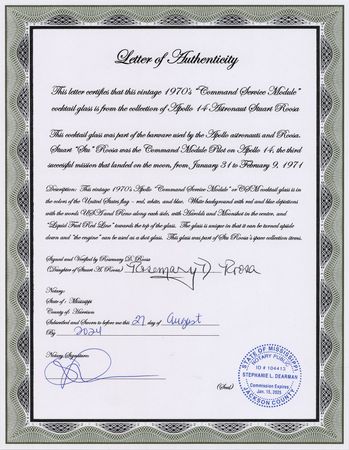 Letter of Authenticity
This letter certifies that this vintage 1970's "Command Service Module"
cocktail glass is from the collection of Apollo 14 Astronaut Stuart Roosa
This cocktail glass was part of the barware used by the Apollo astronauts and Roosa.
Stuart "Stu" Roosa was the Command Module Pilot on Apollo 14, the third
successful mission that landed on the moon, from January 31 to February 9, 1971
Description: This vintage 1970's Apollo "Command Service Module" or CSM cocktail glass is in
the colors of the United States flag – red, white, and blue. White background with red and blue depictions
with the words USA and Roosa along each side, with and Moonshot in the center, and
"Liquid Fuel Red Line" towards the top of the glass. The glass is unique in that it can be turned upside
down and "the engine" can be used as a shot glass. This glass was part of Stu Roosa's space collection items.
Signed and Verified by Rosemary D. Roosa
(Daughter of Stuart A. Roosa) Rosemary D Roosa
Notary:
State of: Mississippi
County of: Harrison
Subscribed and Sworn to before me this 27 day of August
By 2024
Notary Signature:
(Seal)
STATE OF MISSISSIPPI
NOTARY PUBLIC
ID # 104413
STEPHANIE L. DEARMAN
Commission Expires
Jan. 15, 2025
JACKSON COUNTY